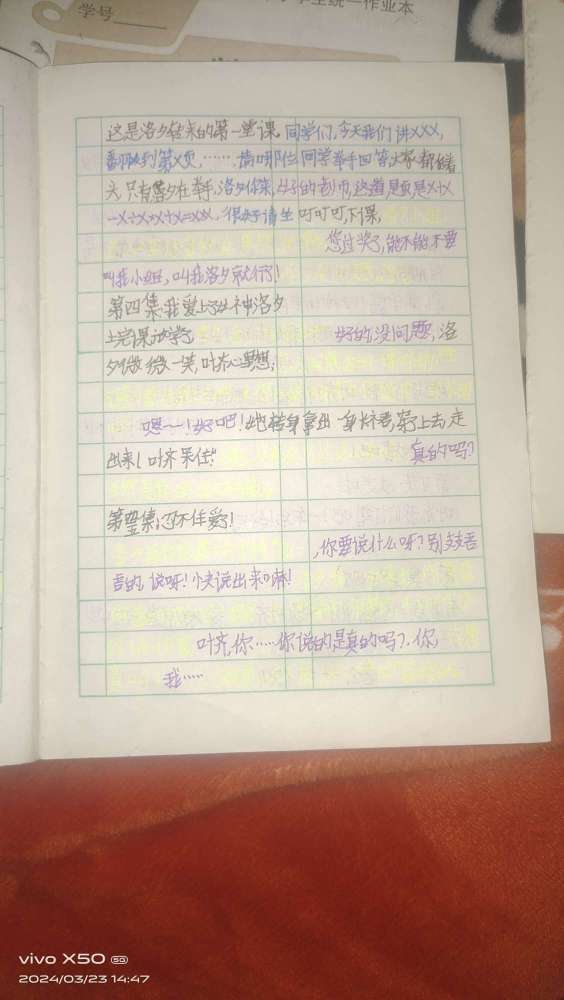 学号
统一作业本
这是洛夕转来的第一堂课，同学们，今天我们讲XXX，
翻到第X页，……，请哪位同学举手回答，大家都低着
头，只有洛夕在举手，洛夕你来，好的老师，这道题是X+X
-X÷X×X+X=XX，很好请坐 叮叮叮，下课，
您过奖了，能不能不要
叫我小姐，叫我洛夕就行了！
第四集：我爱上了女神洛夕
上完课放学了 好的没问题，洛
夕微微一笑，叶齐心里想：
嗯……！好吧！她转身拿出一身，穿上去，走
出来！叶齐呆住！ 真的吗？
第五集：忍不住爱了！
，你要说什么呀？别支支吾
吾的，说呀！快说出来嘛！
叶齐，你……你说的是真的吗？，你，
我……
vivo X50 5G
2024/03/23 14:47